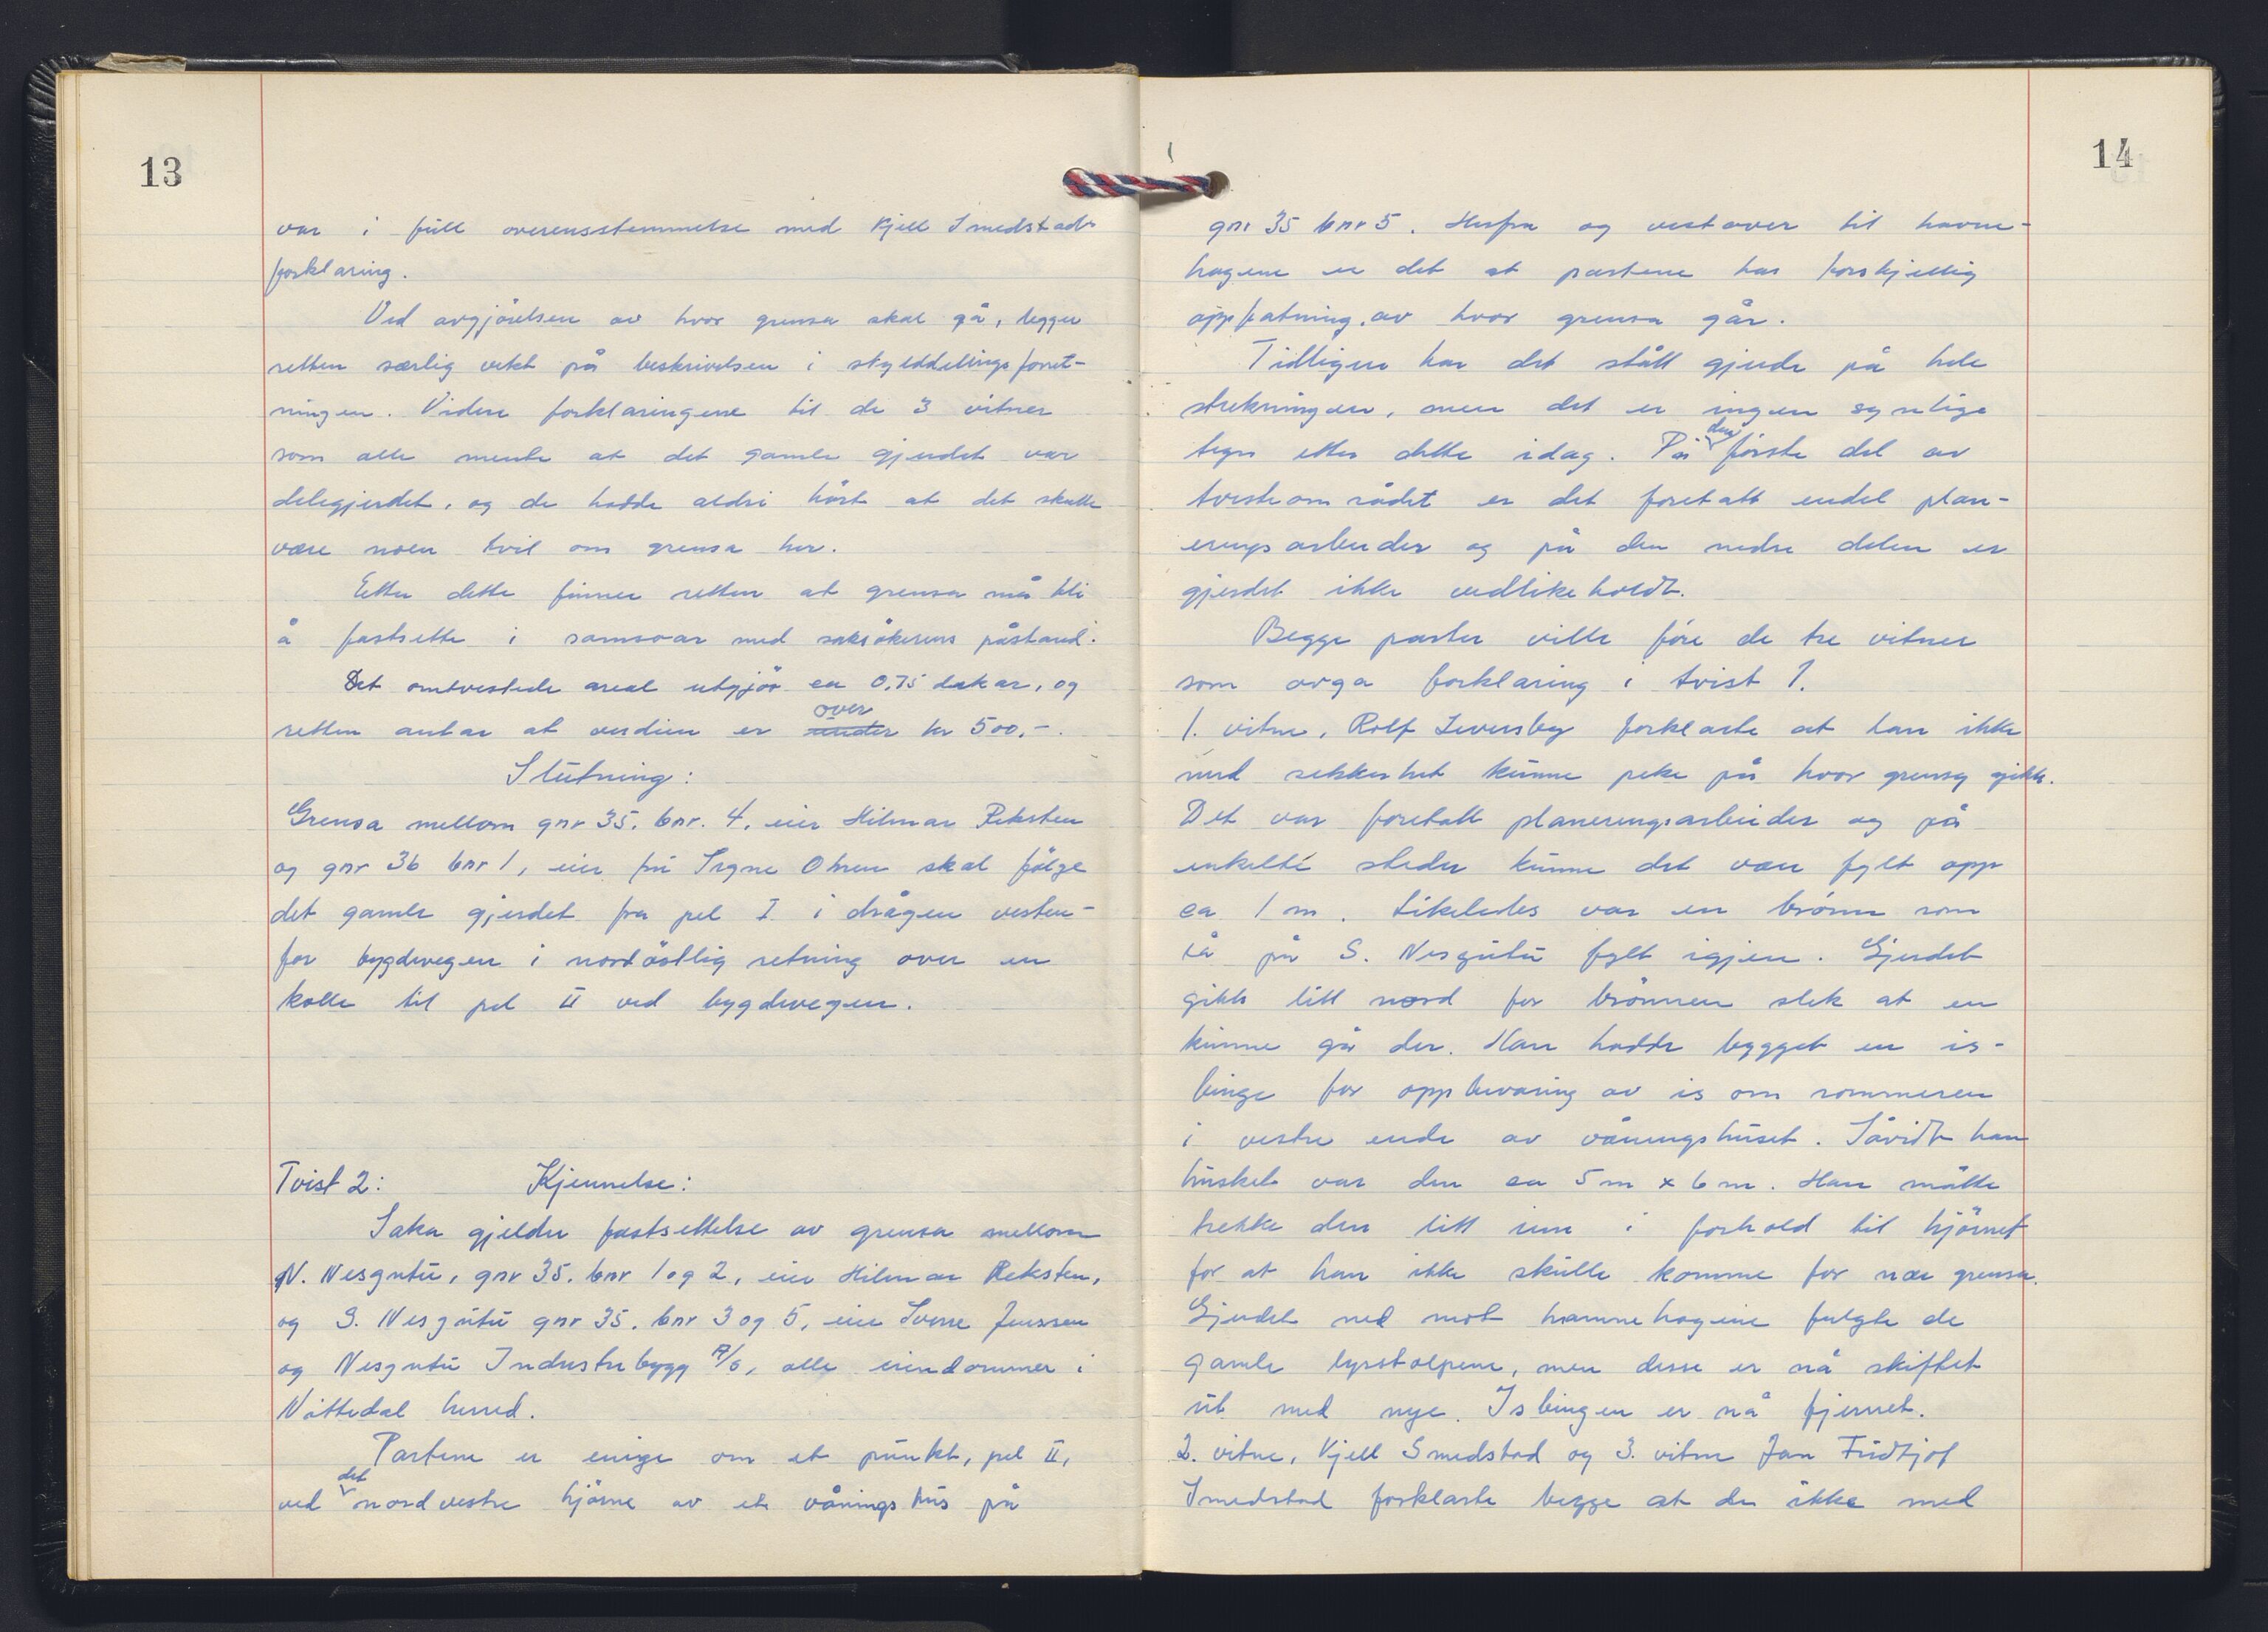 13
var i full overensstemmelse med Kjell Smedstads
forklaring.
Ved avgjörelsen av hvor grensa skal gå, legger
retten særlig vekt på beskrivelsen i skylddelingsforret-
ningen. Videre forklaringene til de 3 vitner
som alle mente at det gamle gjerdet var
delegjerdet, og de hadde aldri hört at det skulle
være noen tvil om grensa her.
Etter dette finner retten at grensa må bli
å fastsette i samsvar med saksökerens påstand.
Det omtvistede areal utgjör ca 0,75 dekar, og
retten antar at verdien er under over kr 500,-.
Slutning:
Grensa mellom gnr 35, bnr. 4, eier Hilmar Reksten
og gnr 36 bnr 1, eier fru Signe Ohren skal fölge
det gamle gjerdet fra pel I i drågen vesten-
for bygdevegen i nordöstlig retning over en
kolle til pel II ved bygdevegen.
Tvist 2: Kjennelse:
Saka gjelder fastsettelse av grensa mellom
N. Nesgutu, gnr 35, bnr 1 og 2, eier Hilmar Reksten,
og S. Nesgutu gnr 35, bnr 3 og 5, eier Sverre Jenssen
og Nesgutu Industribygg A/S, alle eiendommer i
Nittedal herred.
Partene er enige om et punkt, pel II,
ved det nordvestre hjörne av et våningshus på
14
gnr 35 bnr 5. Herfra og vestover til havne-
hagene er det at partene har forskjellig
oppfatning av hvor grensa går.
Tidligere har det stått gjerde på hele
strekningen, men det er ingen synlige
tegn etter dette idag. På den förste del av
tvisteområdet er det foretatt endel plan-
eringsarbeider og på den nedre delen er
gjerdet ikke vedlikeholdt.
Begge parter ville före de tre vitner
som avga forklaring i tvist 1.
1. vitne, Rolf Leversby forklarte at han ikke
med sikkerhet kunne peke på hvor grensa gikk.
Det var foretatt planeringsarbeider og på
enkelte steder kunne det være fylt opp
ca 1 m. Likeledes var en brönn som
lå på S. Nesgutu fylt igjen. Gjerdet
gikk litt nord for brönnen slik at en
kunne gå der. Han hadde bygget en is-
binge for oppbevaring av is om sommeren
i vestre ende av våningshuset. Såvidt han
husket var den ca 5 m x 6 m. Han måtte
trekke den litt inn i forhold til hjörnet
for at han ikke skulle komme for nær grensa.
Gjerdet ned mot hamnehagene fulgte de
gamle lysstolpene, men disse er nå skiftet
ut med nye. Isbingen er nå fjernet.
2. vitne, Kjell Smedstad og 3. vitne Jan Fridtjof
Smedstad forklarte begge at de ikke med